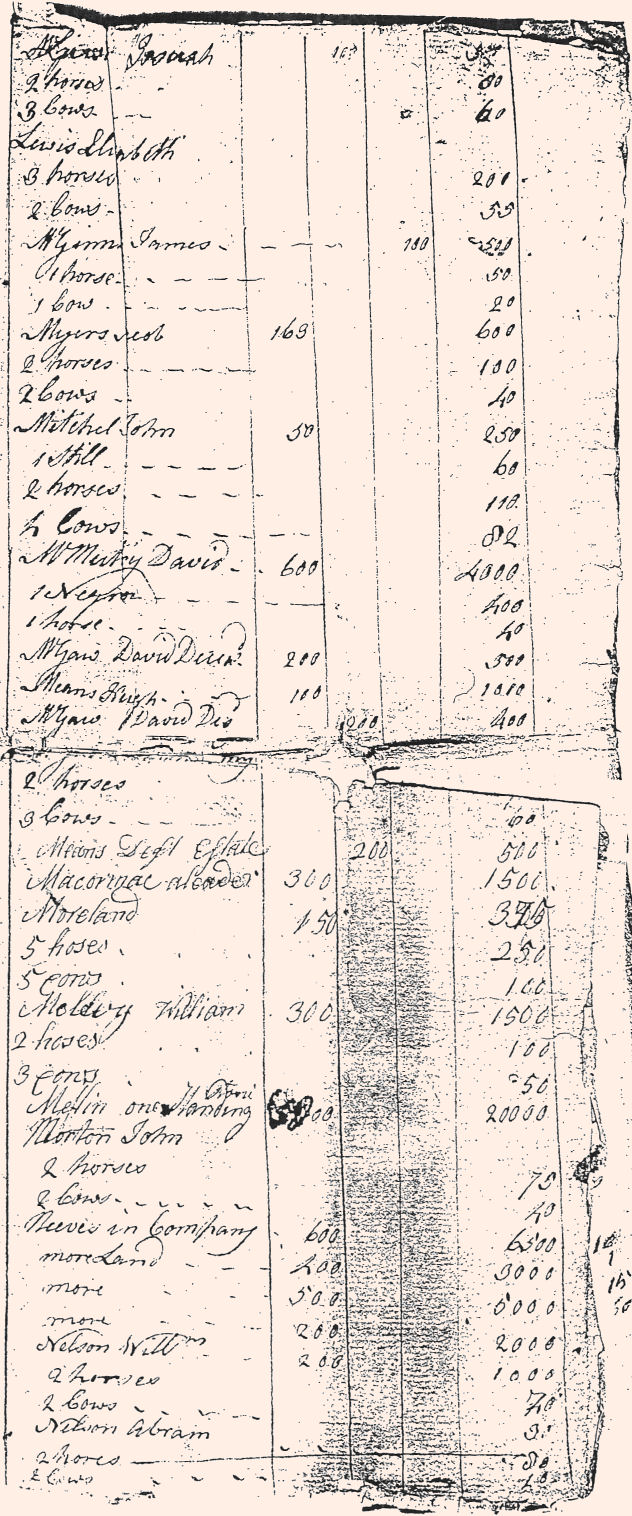 Josiah 100
2 horses 80
3 Cows 60
Lewis Elizbeth
3 horses 200
2 Cows 55
McGinnis James 100 500
1 horse 50
1 Cow 20
Myers 163 600
2 horses 100
2 Cows 40
Mitchel John 50 250
1 Still 60
2 horses 110
4 Cows 82
David 600 4000
1 Negroe 400
1 horse 40
McGaw David 200 500
Means Hugh 100 1000
McGaw David 200 400
2 horses
3 Cows 60
Means Estate 200 500
Macormac 300 1500
Moreland 150
5 hoses 250
5 cows 100
William 300 1500
2 hoses 100
3 cows 50
20000
Morton John
2 horses 75
2 Cows 40
Neeves in Company 600 6500
more Land 200 3000
more 500 5000
more 200 2000
Nelson Willm 200 1000
2 horses 70
2 Cows
Nelson Abram
2 hores 80
2 Cows